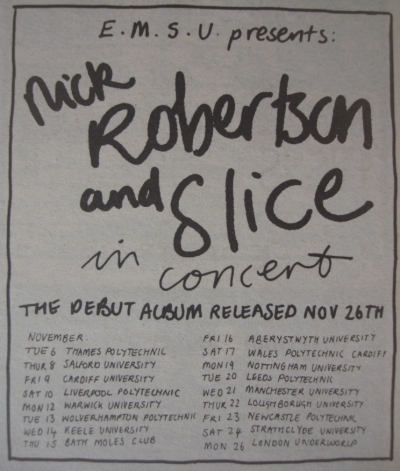 E.M.S.U. presents:
Nick
Robertson
and Slice
in concert
THE DEBUT ALBUM RELEASED NOV 26TH
NOVEMBER
TUE 6 THAMES POLYTECHNIC
THUR 8 SALFORD UNIVERSITY
FRI 9 CARDIFF UNIVERSITY
SAT 10 LIVERPOOL POLYTECHNIC
MON 12 WARWICK UNIVERSITY
TUE 13 WOLVERHAMPTON POLYTECHNIC
WED 14 KEELE UNIVERSITY
THU 15 BATH MOLES CLUB
FRI 16 ABERYSTWYTH UNIVERSITY
SAT 17 WALES POLYTECHNIC CARDIFF
MON 19 NOTTINGHAM UNIVERSITY
TUE 20 LEEDS POLYTECHNIC
WED 21 MANCHESTER UNIVERSITY
THUR 22 LOUGHBOROUGH UNIVERSITY
FRI 23 NEWCASTLE POLYTECHNIC
SAT 24 STRATHCLYDE UNIVERSITY
MON 26 LONDON UNDERWORLD